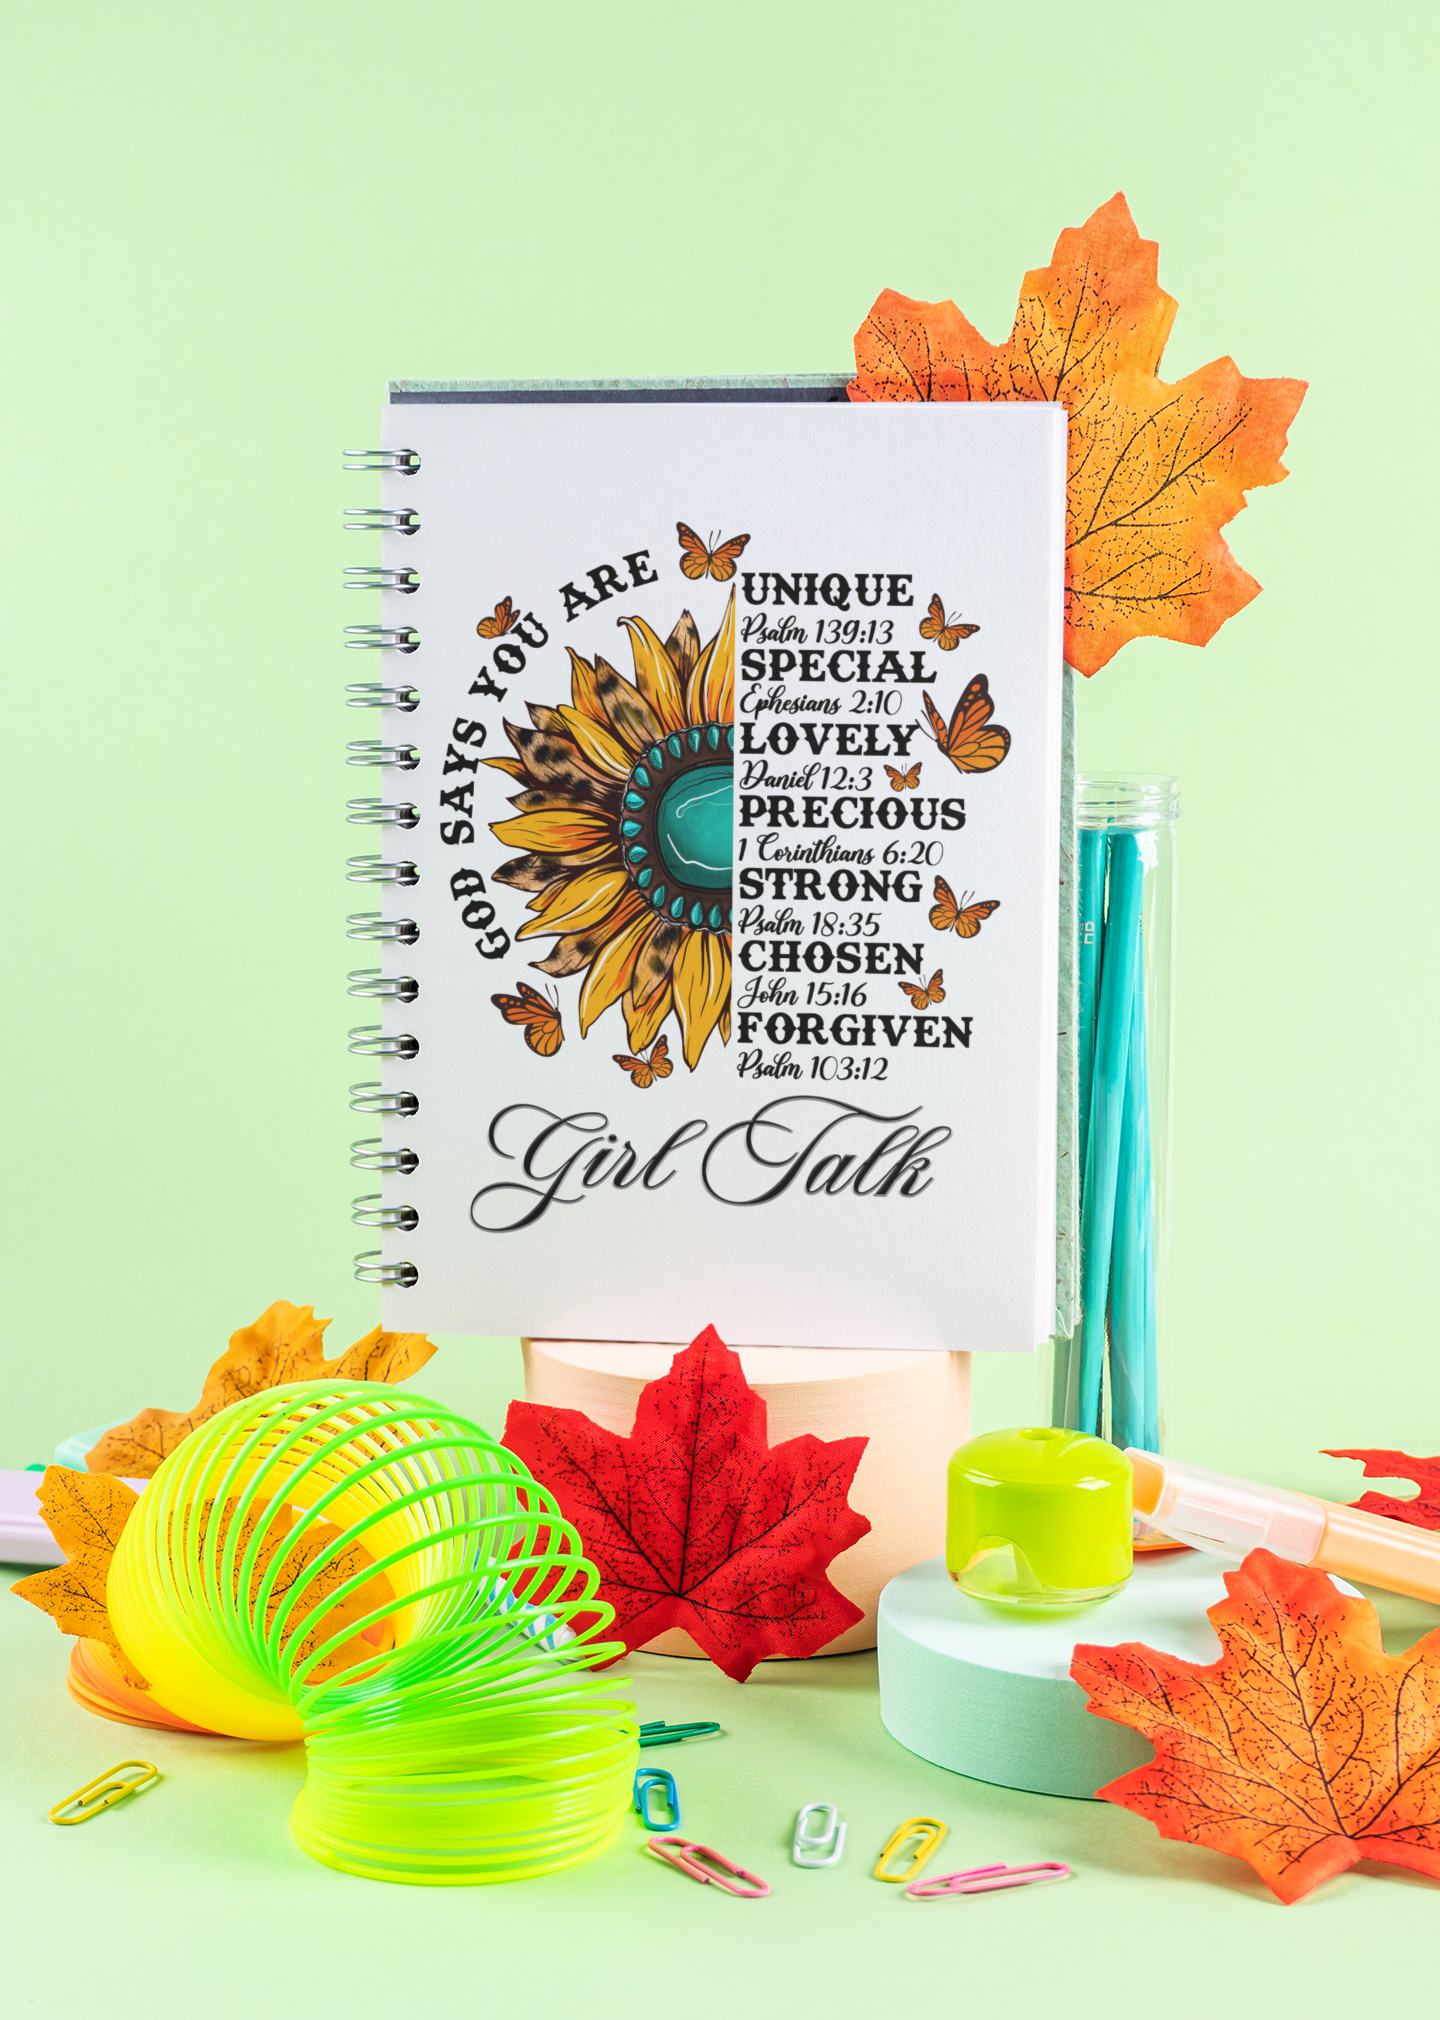 GOD SAYS YOU ARE
UNIQUE
Psalm 139:13
SPECIAL
Ephesians 2:10
LOVELY
Daniel 12:3
PRECIOUS
1 Corinthians 6:20
STRONG
Psalm 18:35
CHOSEN
John 15:16
FORGIVEN
Psalm 103:12
Girl Talk
HB